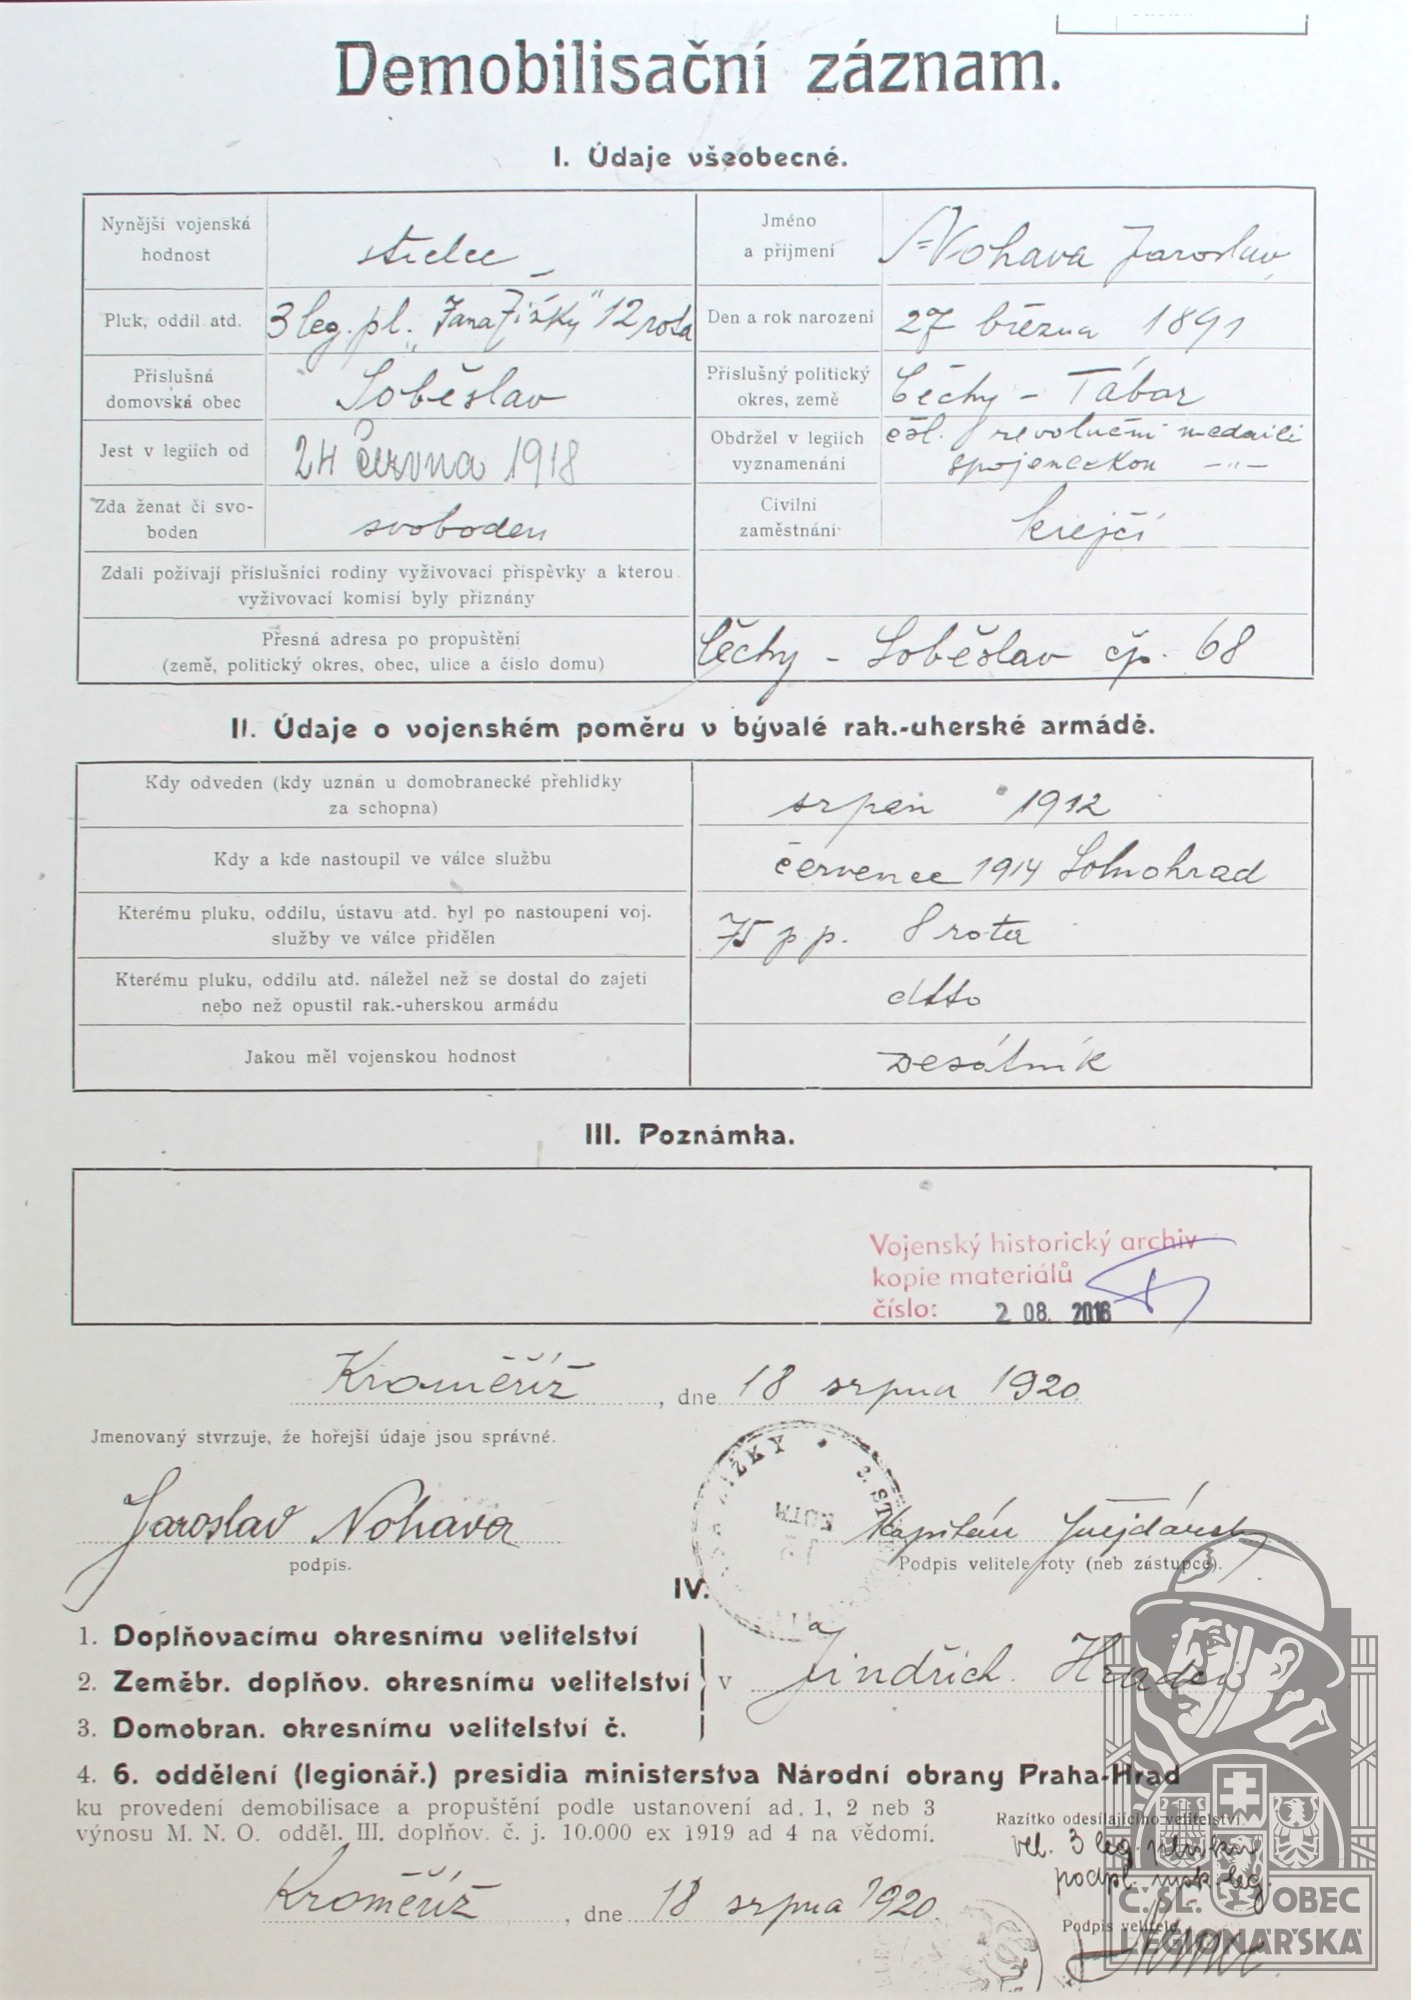 Demobilisační záznam.
I. Údaje všeobecné.
Nynější vojenská hodnost
střelec
Jméno a příjmení
Nohava Jaroslav
Pluk, oddíl atd.
3 leg. pl. „Jana Žižky" 12 rota
Den a rok narození
27 března 1891
Příslušná domovská obec
Soběslav
Příslušný politický okres, země
Čechy - Tábor
Jest v legiích od
24 června 1918
Obdržel v legiích vyznamenání
čsl. revoluční medaili
spojeneckou -"-
Zda ženat či svo-
boden
svoboden
Civilní zaměstnání
krejčí
Zdali požívají příslušníci rodiny vyživovací příspěvky a kterou
vyživovací komisí byly přiznány
Přesná adresa po propuštění
(země, politický okres, obec, ulice a číslo domu)
Čechy - Soběslav čp. 68
II. Údaje o vojenském poměru v bývalé rak.-uherské armádě.
Kdy odveden (kdy uznán u domobranecké přehlídky
za schopna)
srpen 1912
Kdy a kde nastoupil ve válce službu
červenec 1914 Solnohrad
Kterému pluku, oddílu, ústavu atd. byl po nastoupení voj.
služby ve válce přidělen
75 p. p. 8 rota
Kterému pluku, oddílu atd. náležel než se dostal do zajetí
nebo než opustil rak.-uherskou armádu
dtto
Jakou měl vojenskou hodnost
desátník
III. Poznámka.
Vojenský historický archiv
kopie materiálů
číslo: 2 08. 2016
Kroměříž, dne 18 srpna 1920.
Jmenovaný stvrzuje, že hořejší údaje jsou správné.
Jaroslav Nohava
podpis.
ŽIŽKY • 3. ST
Kapitán
Podpis velitele roty (neb zástupce).
IV.
1. Doplňovacímu okresnímu velitelství
2. Zeměbr. doplňov. okresnímu velitelství
3. Domobran. okresnímu velitelství č.
v Jindřich. Hradci
4. 6. oddělení (legionář.) presidia ministerstva Národní obrany Praha-Hrad
ku provedení demobilisace a propuštění podle ustanovení ad. 1, 2 neb 3
výnosu M. N. O. odděl. III. doplňov. č. j. 10.000 ex 1919 ad 4 na vědomí.
Razítko odesílajícího velitelství.
vel. 3 leg. pluku
podpl. rusk. leg.
Kroměříž, dne 18 srpna 1920.
Podpis velitele
ČSL. OBEC
LEGIONÁŘSKÁ